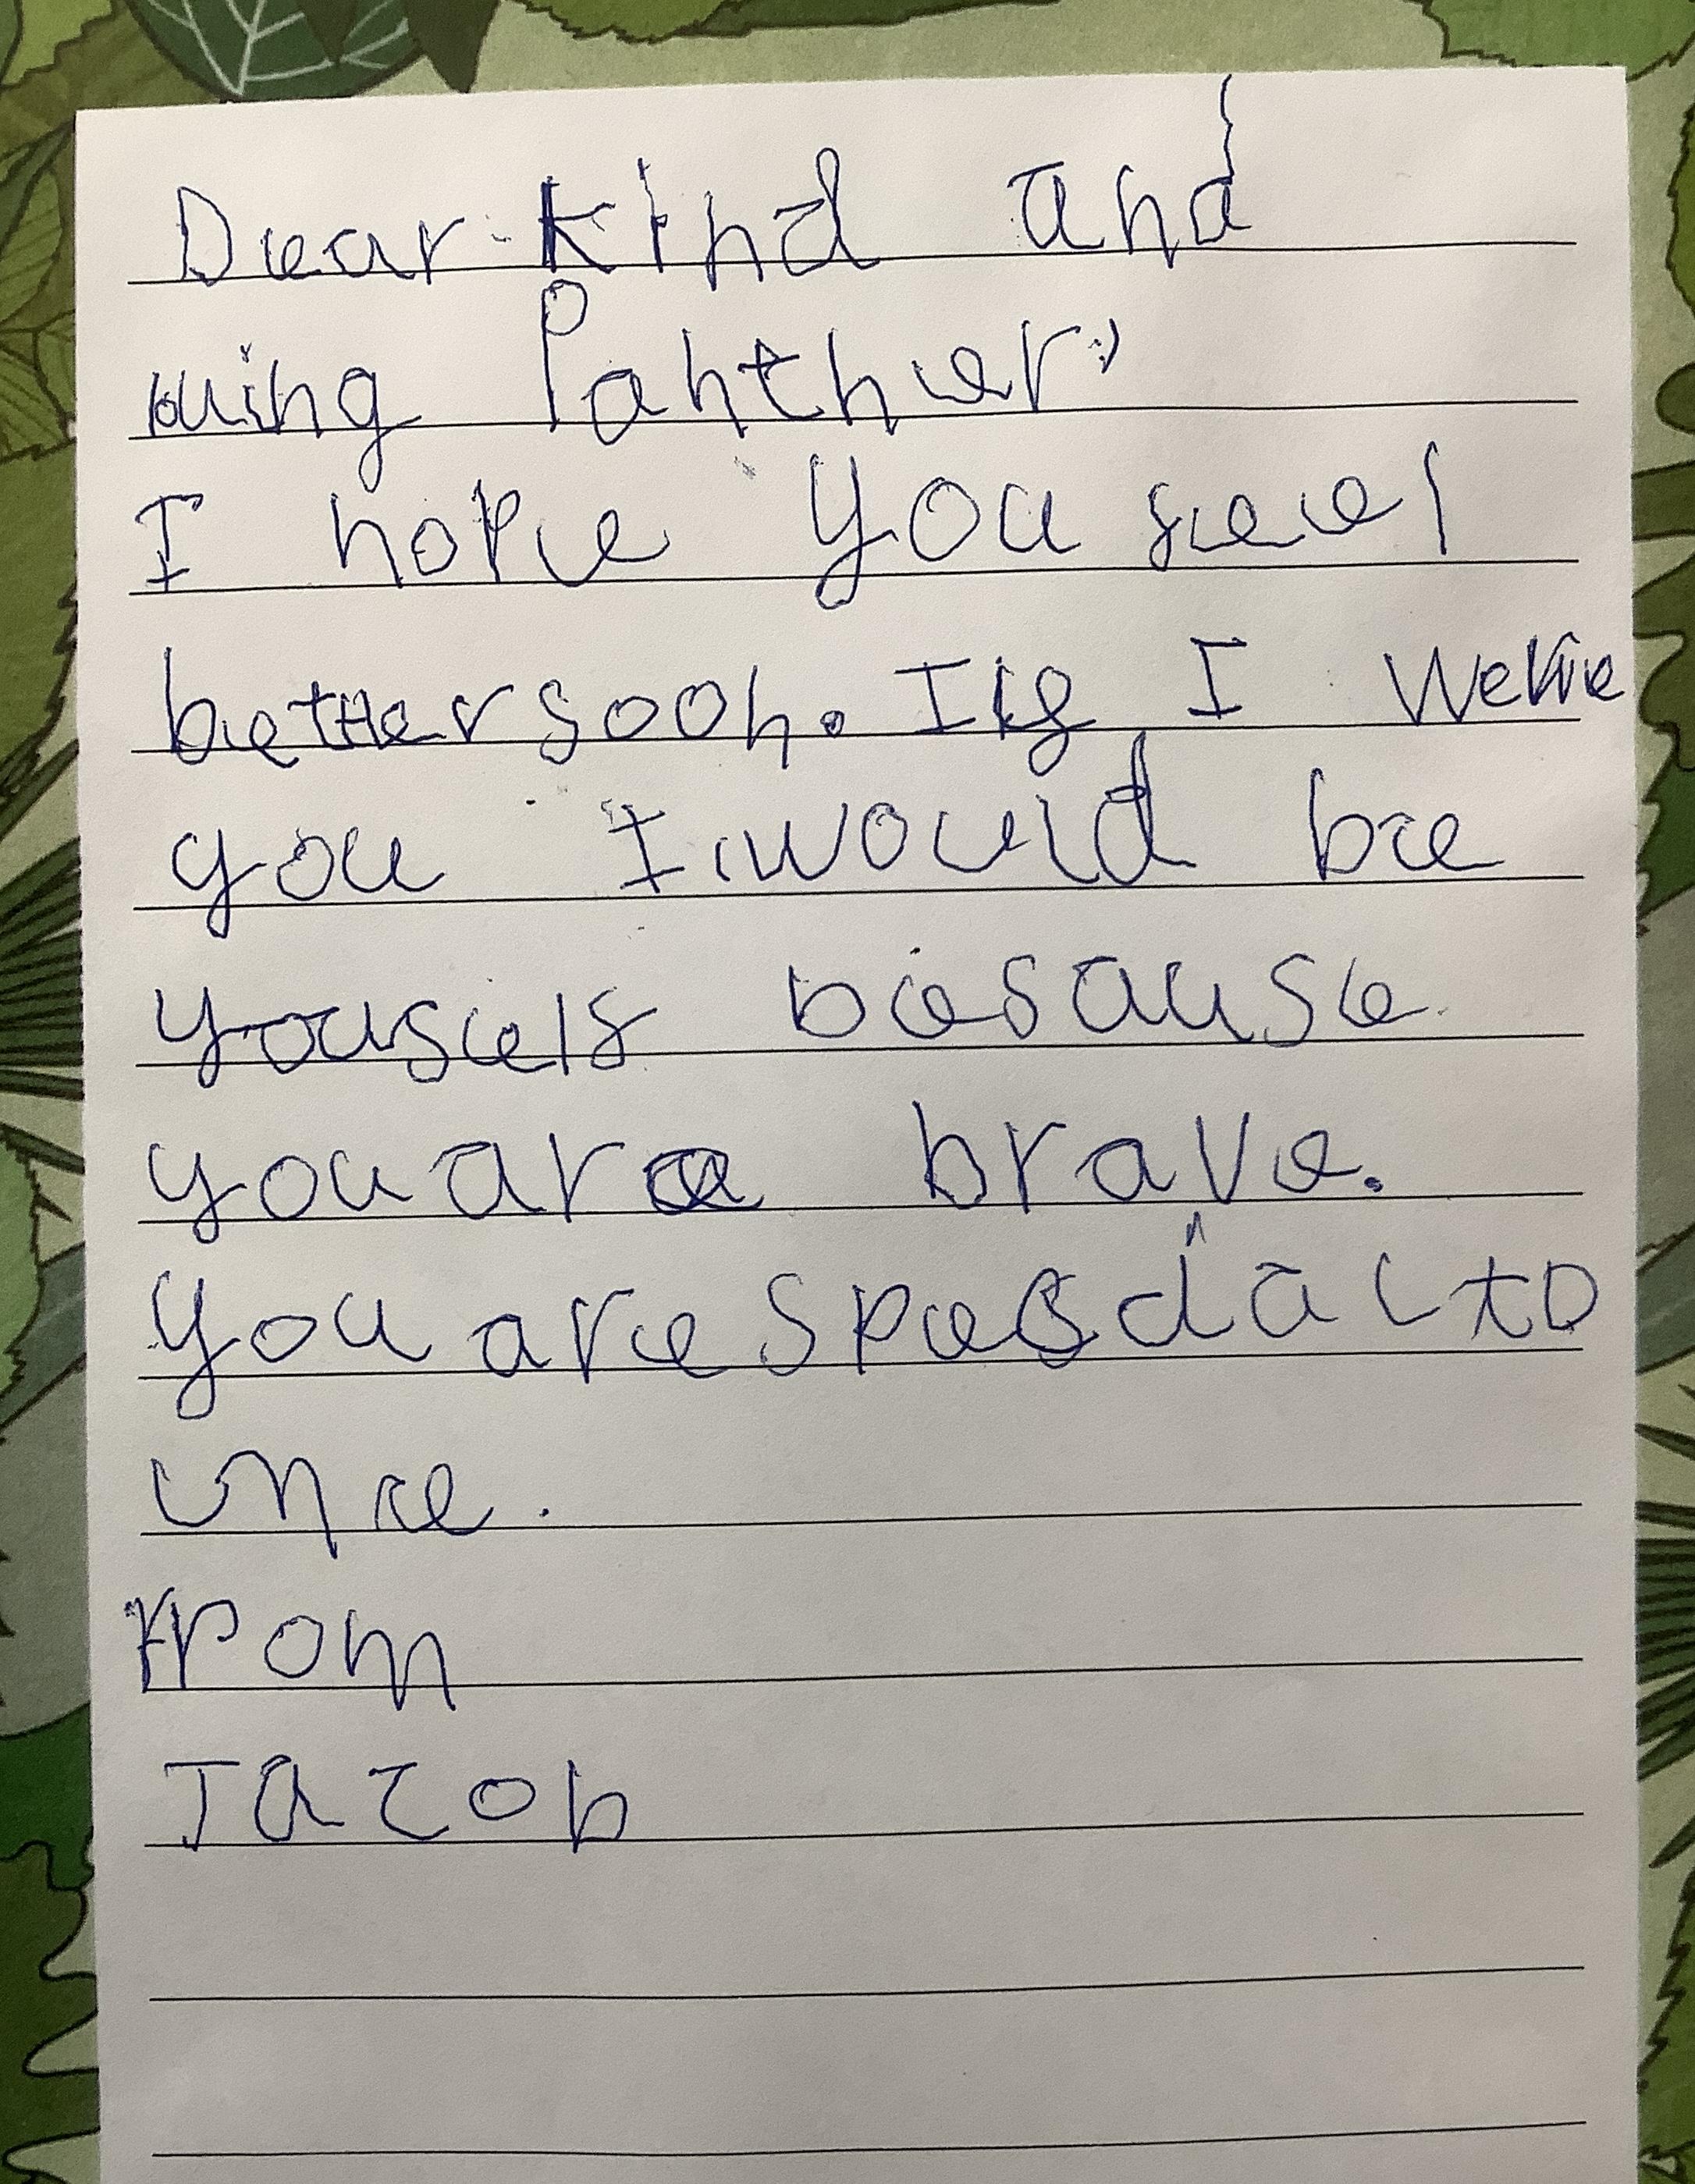 Dear kind and
wing Panther,
I hope you feel
better soon. If I were
you I would be
youself because
you are brave.
you are special to
me.
From
Jacob